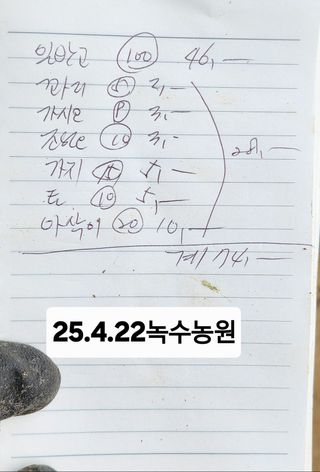 일반고 100 46,—
꽈리 2,—
가시오 3,—
조선오 10 3,-
가지 5,—
토 10 5,—
아삭이 20 10,—
28,—
계 74,—
25.4.22녹수농원